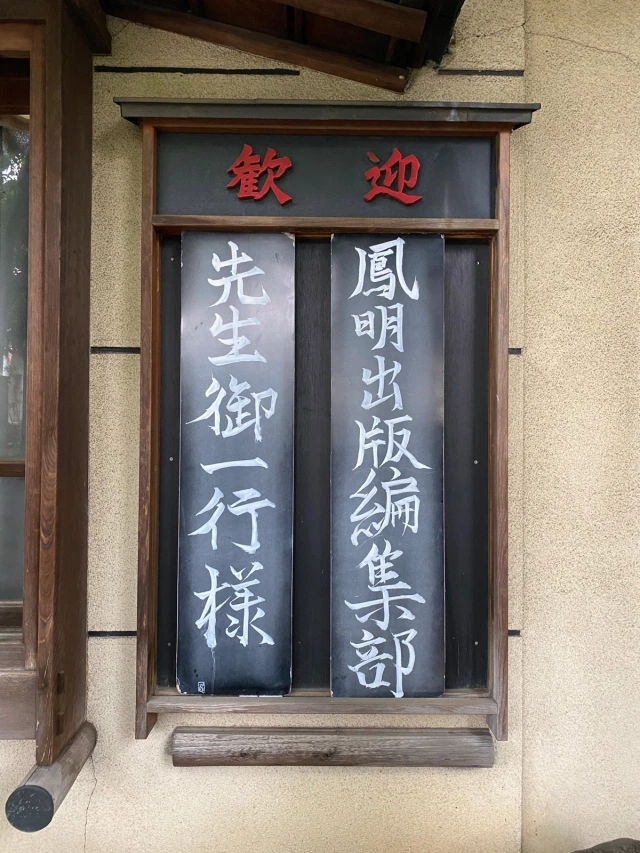 歓迎
鳳明出版編集部
先生御一行様